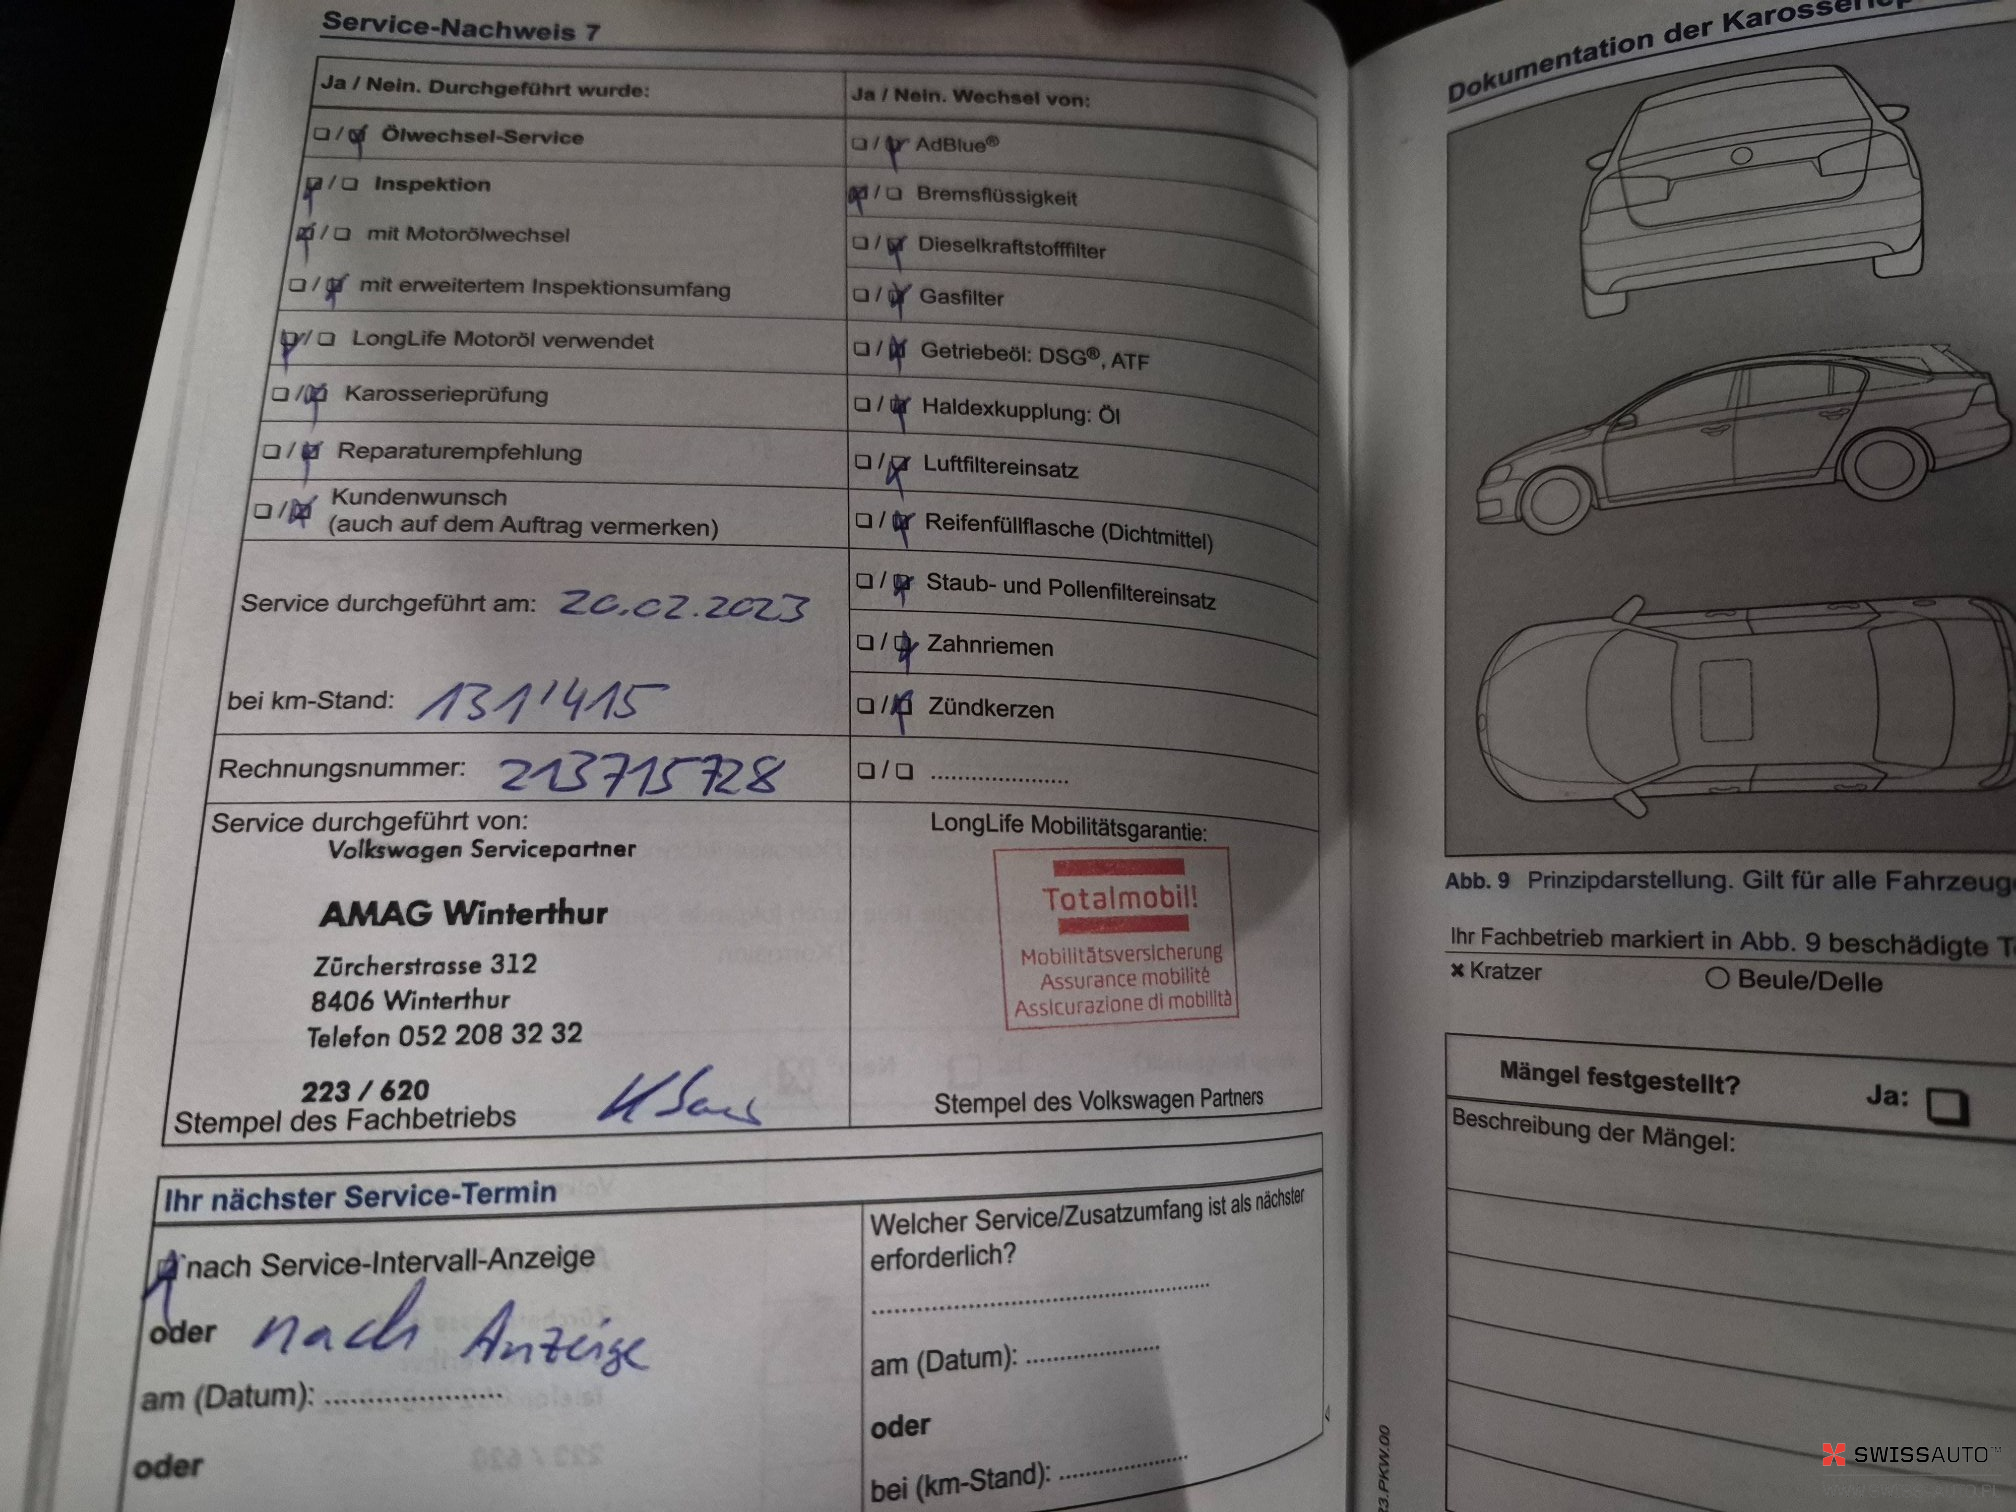 Service-Nachweis 7
Ja / Nein. Durchgeführt wurde:
Ölwechsel-Service
Inspektion
mit Motorölwechsel
mit erweitertem Inspektionsumfang
LongLife Motoröl verwendet
Karosserieprüfung
Reparaturempfehlung
Kundenwunsch
(auch auf dem Auftrag vermerken)
Service durchgeführt am: 20.02.2023
bei km-Stand: 131'415
Rechnungsnummer: 213715728
Service durchgeführt von:
Volkswagen Servicepartner
AMAG Winterthur
Zürcherstrasse 312
8406 Winterthur
Telefon 052 208 32 32
223 / 620
Stempel des Fachbetriebs
Ja / Nein. Wechsel von:
AdBlue®
Bremsflüssigkeit
Dieselkraftstofffilter
Gasfilter
Getriebeöl: DSG®, ATF
Haldexkupplung: Öl
Luftfiltereinsatz
Reifenfüllflasche (Dichtmittel)
Staub- und Pollenfiltereinsatz
Zahnriemen
Zündkerzen
LongLife Mobilitätsgarantie:
Totalmobil!
Mobilitätsversicherung
Assurance mobilité
Assicurazione di mobilità
Stempel des Volkswagen Partners
Ihr nächster Service-Termin
nach Service-Intervall-Anzeige
oder nach Anzeige
am (Datum):
oder
Welcher Service/Zusatzumfang ist als nächster
erforderlich?
am (Datum):
oder
bei (km-Stand):
Dokumentation der
Abb. 9 Prinzipdarstellung. Gilt für alle
Ihr Fachbetrieb markiert in Abb. 9 beschädigte
Kratzer
Beule/Delle
Mängel festgestellt? Ja:
Beschreibung der Mängel:
SWISSAUTO™